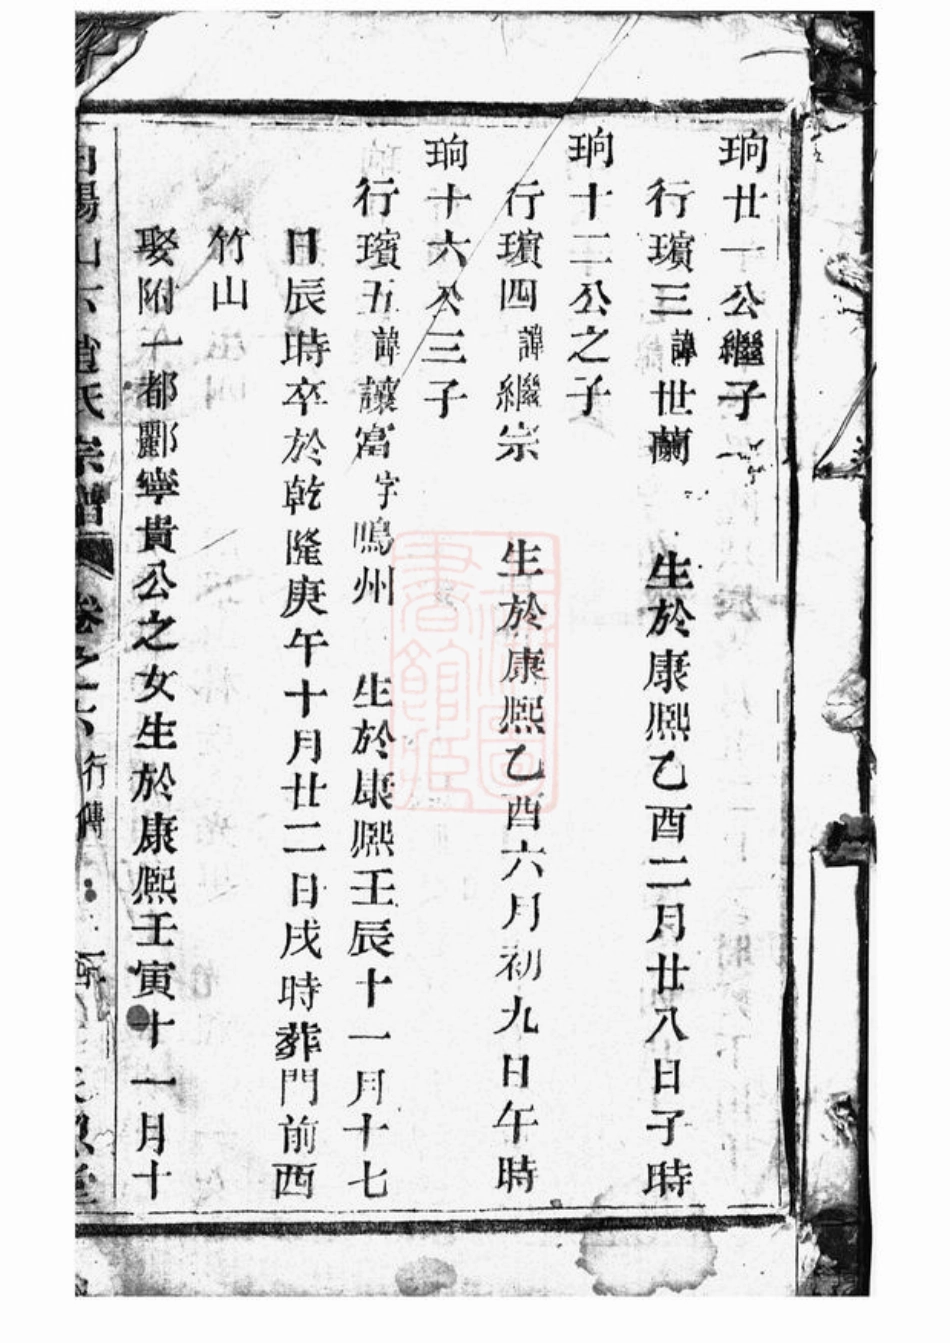 珦廿一公繼子
行璸三諱世蘭 生於康熙乙酉二月廿八日子時
珦十二公之子
行璸四諱繼宗 生於康熙乙酉六月初九日午時
珦十六公三子
行璸五諱讓富字鳴州 生於康熙壬辰十一月十七
日辰時卒於乾隆庚午十月廿二日戌時葬門前西
竹山
娶附一都酈寧貴公之女生於康熙壬寅十一月十
山 氏宗譜 卷之六 行傳